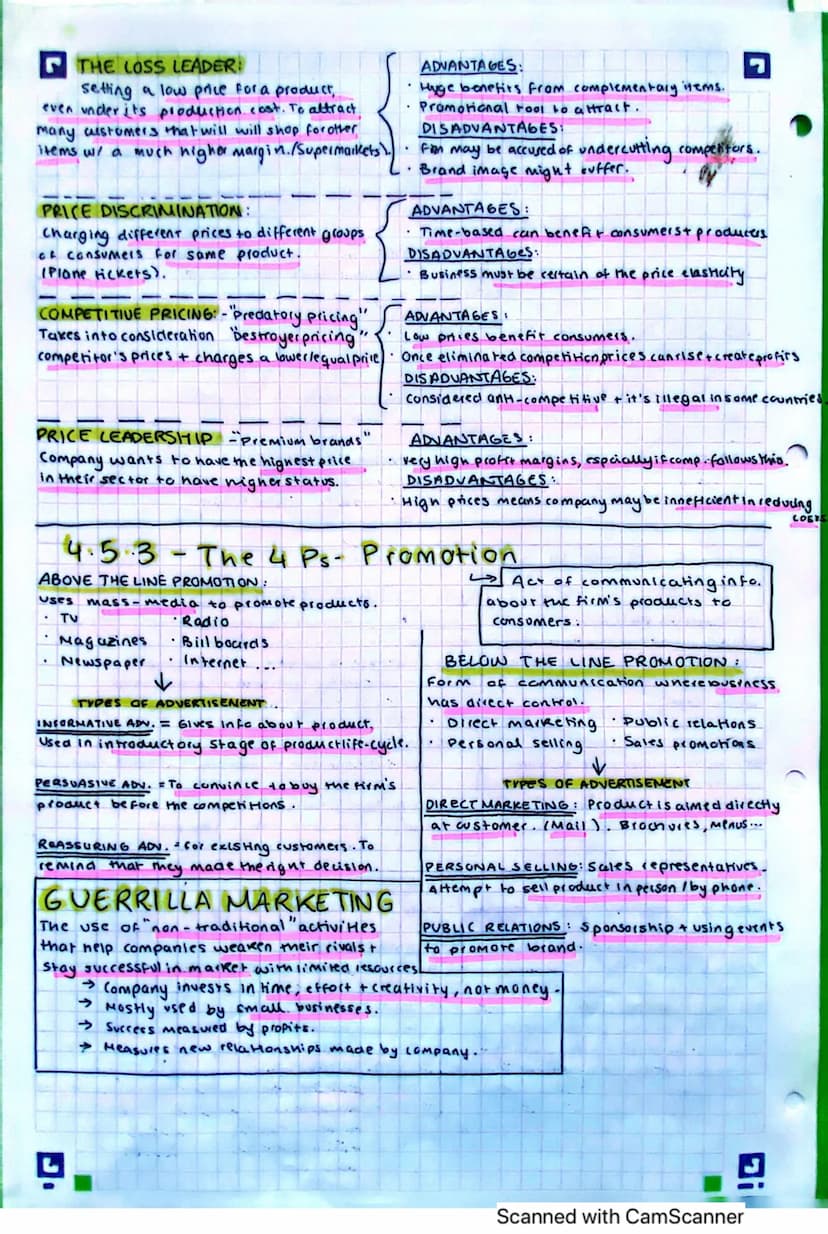 THE LOSS LEADER:
Setting a low price for a product,
even under its production cost. To attract
many customers that will will shop for other
items w/ a much higher margin. (Supermarkets).
ADVANTAGES:
· Huge benefits from complementary items.
· Promotional tool to attract.
DISADVANTAGES:
· Firm may be accused of undercutting competitors.
· Brand image might suffer.
PRICE DISCRIMINATION:
Charging different prices to different groups
of consumers for same product.
(Plane tickets).
ADVANTAGES:
· Time-based can benefit consumers + producers
DISADVANTAGES:
· Business must be certain of the price elasticity
COMPETITIVE PRICING: - "Predatory pricing"
Takes into consideration "Destroyer pricing"
competitor's prices + charges a lower/equal price
ADVANTAGES:
· Low prices benefit consumers.
· Once eliminated competition prices can rise + create profits
DISADVANTAGES:
· Considered anti-competitive + it's illegal in some countries
PRICE LEADERSHIP - "Premium brands"
Company wants to have the highest price
in their sector to have higher status.
ADVANTAGES:
· Very high profit margins, especially if comp. follows this.
DISADVANTAGES:
· High prices means company may be inneficient in reducing
costs
4.5.3 - The 4 Ps - Promotion
→ Act of communicating info.
about the firm's products to
consumers.
ABOVE THE LINE PROMOTION:
Uses mass-media to promote products.
· TV · Radio
· Magazines · Billboards
· Newspaper · Internet ...
↓
TYPES OF ADVERTISEMENT
INFORMATIVE ADV. = Gives info about product.
Used in introductory stage of product life-cycle.
PERSUASIVE ADV. = To convince to buy the firm's
product before the competitions.
REASSURING ADV. = For existing customers. To
remind that they made the right decision.
BELOW THE LINE PROMOTION:
Form of communication where business
has direct control.
· Direct marketing · Public relations
· Personal selling · Sales promotions
↓
TYPES OF ADVERTISEMENT
DIRECT MARKETING: Product is aimed directly
at customer. (Mail). Brochures, Menus...
PERSONAL SELLING: Sales representatives
attempt to sell product in person / by phone.
PUBLIC RELATIONS: Sponsorship + using events
to promote brand.
GUERRILLA MARKETING
The use of "non-traditional" activities
that help companies weaken their rivals +
stay successful in market with limited resources
→ Company invests in time, effort + creativity, not money.
→ Mostly used by small businesses.
→ Success measured by profits.
→ Measures new relationships made by company.
Scanned with CamScanner